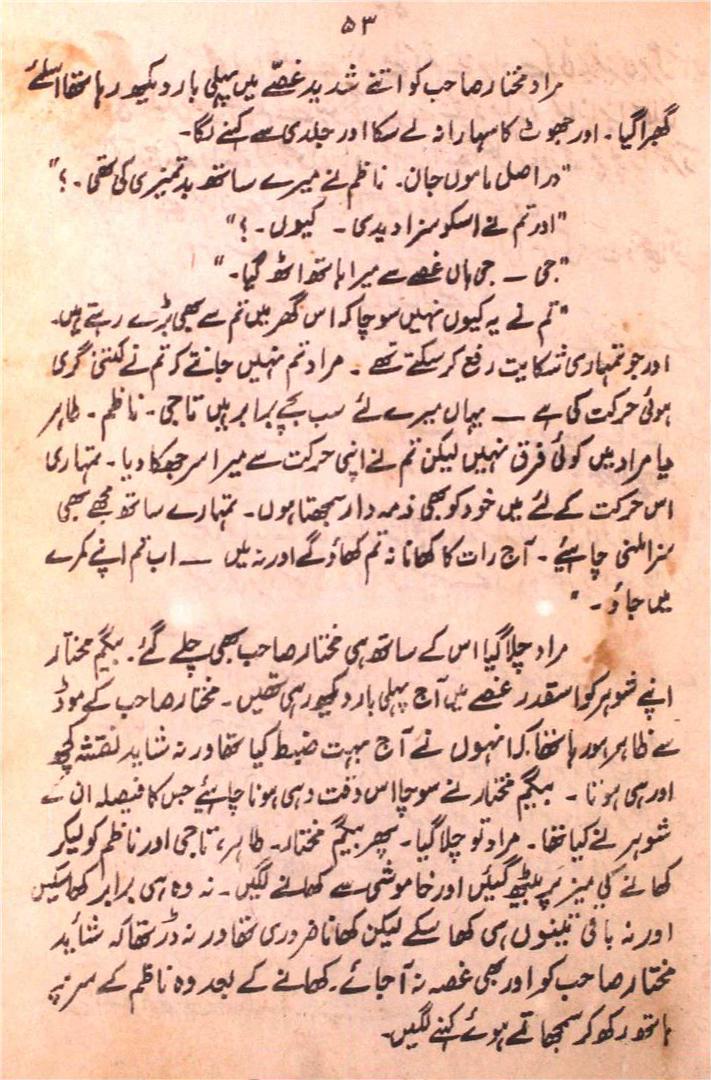 ۵۳
مراد مختار صاحب کو اتنے شدید غصّے میں پہلی بار دیکھ رہا تھا اسلئے
گھبرا گیا۔ اور جھوٹ کا سہارا نہ لے سکا اور جلدی سے کہنے لگا۔
"دراصل ماموں جان۔ ناظم نے میرے ساتھ بدتمیزی کی تھی۔؟"
"اور تم نے اسکو سزا دیدی۔ کیوں۔؟"
"جی — جی ہاں غصے سے میرا ہاتھ اٹھ گیا۔"
"تم نے یہ کیوں نہیں سوچا کہ اس گھر میں تم سے بھی بڑے رہتے ہیں۔
اور جو تمہاری شکایت رفع کر سکتے تھے۔ مراد تم نہیں جانتے کہ تم نے کتنی گری
ہوئی حرکت کی ہے — یہاں میرے لئے سب بچے برابر ہیں تاجی۔ ناظم۔ طاہر
یا مراد میں کوئی فرق نہیں لیکن تم نے اپنی حرکت سے میرا سر جھکا دیا۔ تمہاری
اس حرکت کے لئے میں خود کو بھی ذمہ دار سمجھتا ہوں۔ تمہارے ساتھ مجھے بھی
سزا ملنی چاہیئے۔ آج رات کا کھانا نہ تم کھاؤ گے اور نہ میں — اب تم اپنے کمرے
میں جاؤ۔"
مراد چلا گیا اس کے ساتھ ہی مختار صاحب بھی چلے گئے۔ بیگم مختار
اپنے شوہر کو اسقدر غصے میں آج پہلی بار دیکھ رہی تھیں۔ مختار صاحب کے موڈ
سے ظاہر ہو رہا تھا کہ انہوں نے آج بہت ضبط کیا تھا ورنہ شاید نقشہ کچھ
اور ہی ہوتا۔ بیگم مختار نے سوچا اس وقت وہی ہونا چاہیئے جس کا فیصلہ ان کے
شوہر نے کیا تھا۔ مراد تو چلا گیا۔ پھر بیگم مختار۔ طاہر، تاجی اور ناظم کو لیکر
کھانے کی میز پر بیٹھ گئیں اور خاموشی سے کھانے لگیں۔ نہ وہ ہی برابر کھا سکیں
اور نہ باقی تینوں ہی کھا سکے لیکن کھانا ضروری تھا ورنہ ڈر تھا کہ شائد
مختار صاحب کو اور بھی غصہ نہ آ جائے۔ کھانے کے بعد وہ ناظم کے سر پر
ہاتھ رکھ کر سمجھاتے ہوئے کہنے لگیں۔